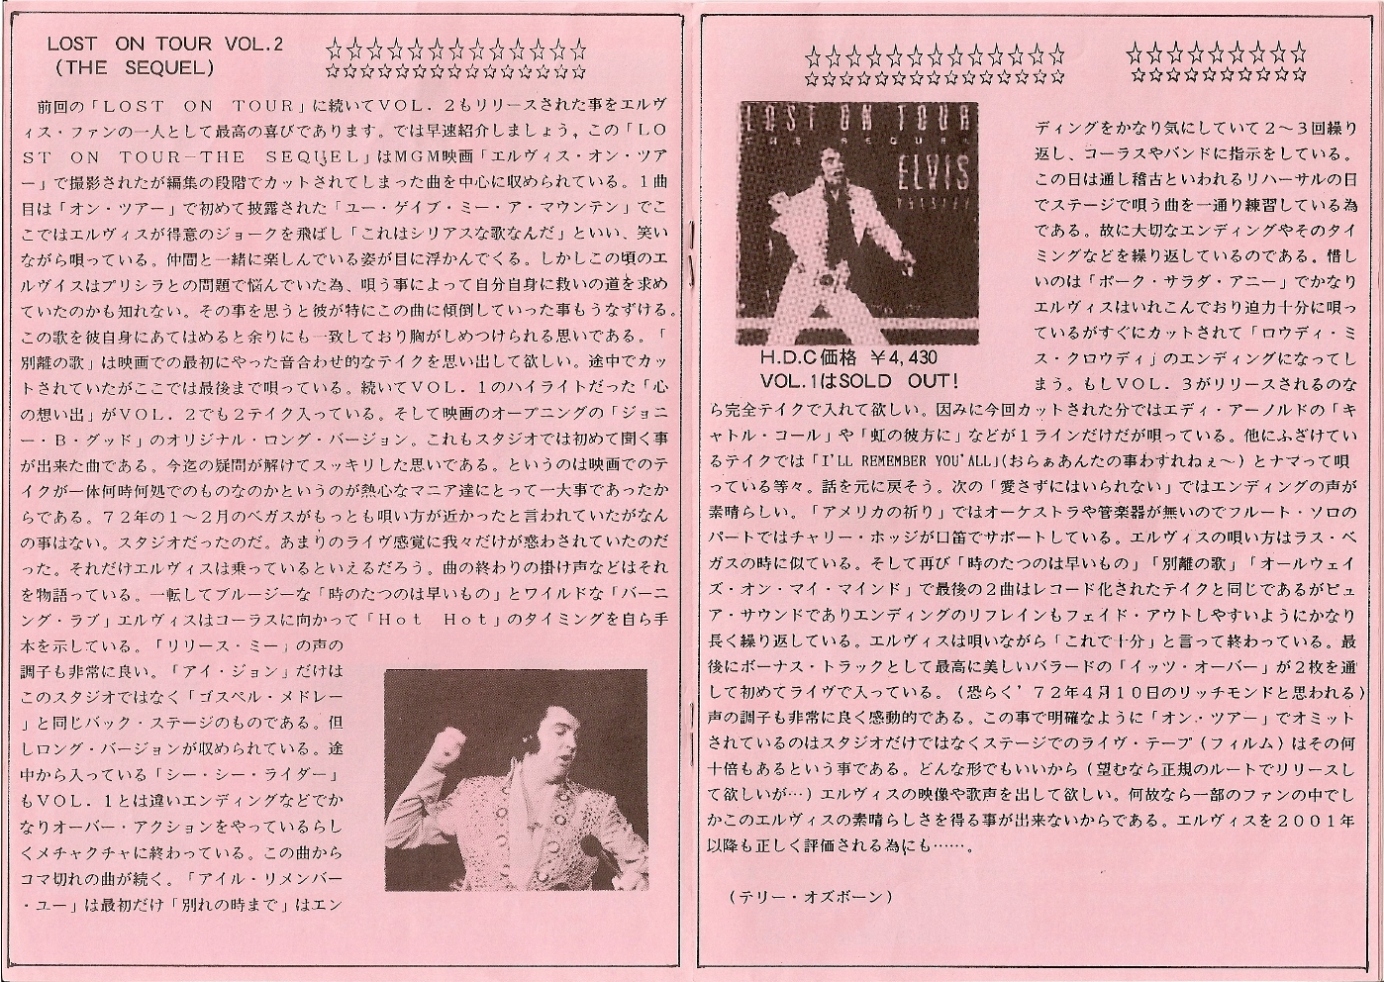 LOST ON TOUR VOL.2
(THE SEQUEL)
☆☆☆☆☆☆☆☆☆☆☆☆☆
☆☆☆☆☆☆☆☆☆☆☆☆☆☆☆
前回の「ＬＯＳＴ　ＯＮ　ＴＯＵＲ」に続いてＶＯＬ．２もリリースされた事をエルヴ
ィス・ファンの一人として最高の喜びであります。では早速紹介しましょう，この「ＬＯ
ＳＴ　ＯＮ　ＴＯＵＲ－ＴＨＥ　ＳＥＱＵＥＬ」はＭＧＭ映画「エルヴィス・オン・ツア
ー」で撮影されたが編集の段階でカットされてしまった曲を中心に収められている。１曲
目は「オン・ツアー」で初めて披露された「ユー・ゲイブ・ミー・ア・マウンテン」でこ
こではエルヴィスが得意のジョークを飛ばし「これはシリアスな歌なんだ」といい、笑い
ながら唄っている。仲間と一緒に楽しんでいる姿が目に浮かんでくる。しかしこの頃のエ
ルヴイスはプリシラとの問題で悩んでいた為、唄う事によって自分自身に救いの道を求め
ていたのかも知れない。その事を思うと彼が特にこの曲に傾倒していった事もうなずける。
この歌を彼自身にあてはめると余りにも一致しており胸がしめつけられる思いである。「
別離の歌」は映画での最初にやった音合わせ的なテイクを思い出して欲しい。途中でカッ
トされていたがここでは最後まで唄っている。続いてＶＯＬ．１のハイライトだった「心
の想い出」がＶＯＬ．２でも２テイク入っている。そして映画のオープニングの「ジョニ
ー・Ｂ・グッド」のオリジナル・ロング・バージョン。これもスタジオでは初めて聞く事
が出来た曲である。今迄の疑問が解けてスッキリした思いである。というのは映画でのテ
イクが一体何時何処でのものなのかというのが熱心なマニア達にとって一大事であったか
らである。７２年の１～２月のベガスがもっとも唄い方が近かったと言われていたがなん
の事はない。スタジオだったのだ。あまりのライヴ感覚に我々だけが惑わされていたのだ
った。それだけエルヴィスは乗っているといえるだろう。曲の終わりの掛け声などはそれ
を物語っている。一転してブルージーな「時のたつのは早いもの」とワイルドな「バーニ
ング・ラブ」エルヴィスはコーラスに向かって「Ｈｏｔ　Ｈｏｔ」のタイミングを自ら手
本を示している。「リリース・ミー」の声の
調子も非常に良い。「アイ・ジョン」だけは
このスタジオではなく「ゴスペル・メドレー
」と同じバック・ステージのものである。但
しロング・バージョンが収められている。途
中から入っている「シー・シー・ライダー」
もＶＯＬ．１とは違いエンディングなどでか
なりオーバー・アクションをやっているらし
くメチャクチャに終わっている。この曲から
コマ切れの曲が続く。「アイル・リメンバー
・ユー」は最初だけ「別れの時まで」はエン
☆☆☆☆☆☆☆☆☆☆☆☆☆　☆☆☆☆☆☆☆☆☆
☆☆☆☆☆☆☆☆☆☆☆☆☆☆☆　☆☆☆☆☆☆☆☆☆☆
LOST ON TOUR
THE SEQUEL
ELVIS
PRESLEY
H.D.C価格 ￥4,430
VOL.1はSOLD OUT!
ディングをかなり気にしていて２～３回繰り
返し、コーラスやバンドに指示をしている。
この日は通し稽古といわれるリハーサルの日
でステージで唄う曲を一通り練習している為
である。故に大切なエンディングやそのタイ
ミングなどを繰り返しているのである。惜し
いのは「ポーク・サラダ・アニー」でかなり
エルヴィスはいれこんでおり迫力十分に唄っ
ているがすぐにカットされて「ロウディ・ミ
ス・クロウディ」のエンディングになってし
まう。もしＶＯＬ．３がリリースされるのな
ら完全テイクで入れて欲しい。因みに今回カットされた分ではエディ・アーノルドの「キ
ャトル・コール」や「虹の彼方に」などが１ラインだけだが唄っている。他にふざけてい
るテイクでは「I'LL REMEMBER YOU'ALL」(おらぁあんたの事わすれねぇ～）とナマって唄
っている等々。話を元に戻そう。次の「愛さずにはいられない」ではエンディングの声が
素晴らしい。「アメリカの祈り」ではオーケストラや管楽器が無いのでフルート・ソロの
パートではチャリー・ホッジが口笛でサポートしている。エルヴィスの唄い方はラス・ベ
ガスの時に似ている。そして再び「時のたつのは早いもの」「別離の歌」「オールウェイ
ズ・オン・マイ・マインド」で最後の２曲はレコード化されたテイクと同じであるがピュ
ア・サウンドでありエンディングのリフレインもフェイド・アウトしやすいようにかなり
長く繰り返している。エルヴィスは唄いながら「これで十分」と言って終わっている。最
後にボーナス・トラックとして最高に美しいバラードの「イッツ・オーバー」が２枚を通
して初めてライヴで入っている。（恐らく’７２年４月１０日のリッチモンドと思われる）
声の調子も非常に良く感動的である。この事で明確なように「オン・ツアー」でオミット
されているのはスタジオだけではなくステージでのライヴ・テープ（フィルム）はその何
十倍もあるという事である。どんな形でもいいから（望むなら正規のルートでリリースし
て欲しいが…）エルヴィスの映像や歌声を出して欲しい。何故なら一部のファンの中でし
かこのエルヴィスの素晴らしさを得る事が出来ないからである。エルヴィスを２００１年
以降も正しく評価される為にも……。
（テリー・オズボーン）